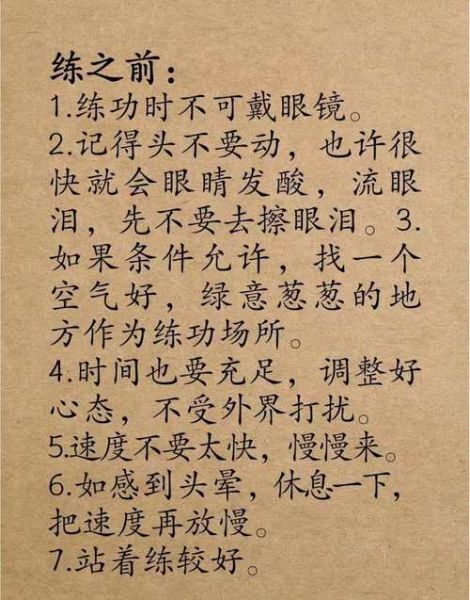 练之前：
1.练功时不可戴眼镜。
2.记得头不要动，也许很
快就会眼睛发酸，流眼
泪，先不要去擦眼泪。3.
如果条件允许，找一个
空气好，绿意葱葱的地
方作为练功场所。
4.时间也要充足，调整好
心态，不受外界打扰。
5.速度不要太快，慢慢来。
6.如感到头晕，休息一下，
把速度再放慢。
7.站着练较好。